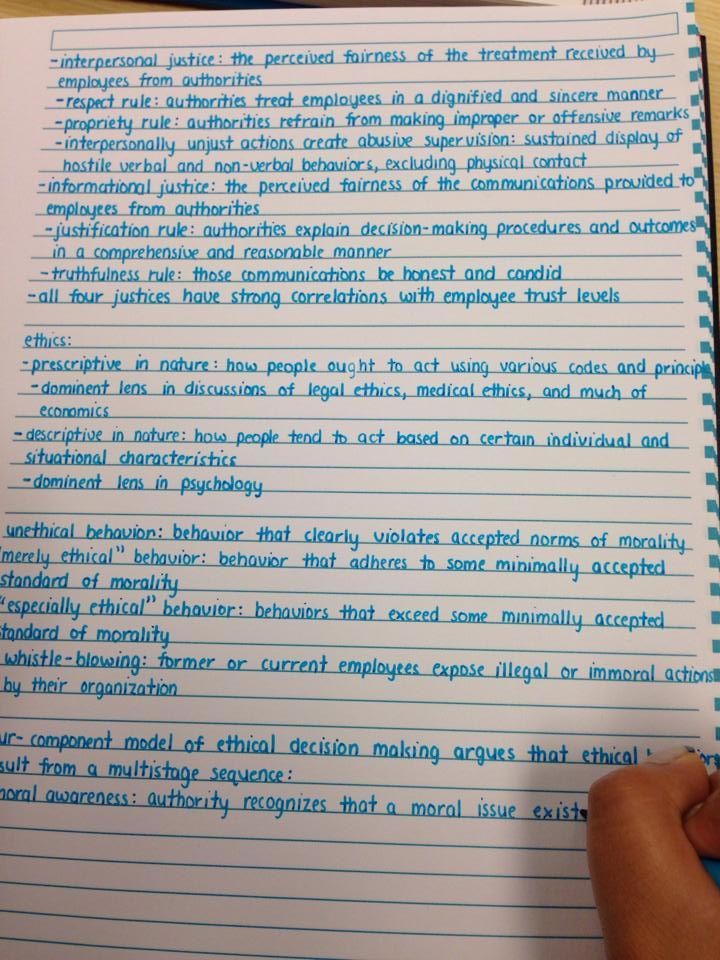 -interpersonal justice: the perceived fairness of the treatment received by
employees from authorities
-respect rule: authorities treat employees in a dignified and sincere manner
-propriety rule: authorities refrain from making improper or offensive remarks
-interpersonally unjust actions create abusive supervision: sustained display of
hostile verbal and non-verbal behaviors, excluding physical contact
-informational justice: the perceived fairness of the communications provided to
employees from authorities
-justification rule: authorities explain decision-making procedures and outcomes
in a comprehensive and reasonable manner
-truthfulness rule: those communications be honest and candid
-all four justices have strong correlations with employee trust levels
ethics:
-prescriptive in nature: how people ought to act using various codes and principle
-dominent lens in discussions of legal ethics, medical ethics, and much of
economics
-descriptive in nature: how people tend to act based on certain individual and
situational characteristics
-dominent lens in psychology
unethical behavior: behavior that clearly violates accepted norms of morality
"merely ethical" behavior: behavior that adheres to some minimally accepted
standard of morality
"especially ethical" behavior: behaviors that exceed some minimally accepted
tandard of morality
whistle-blowing: former or current employees expose illegal or immoral actions
by their organization
ur-component model of ethical decision making argues that ethical
sult from a multistage sequence:
moral awareness: authority recognizes that a moral issue exist